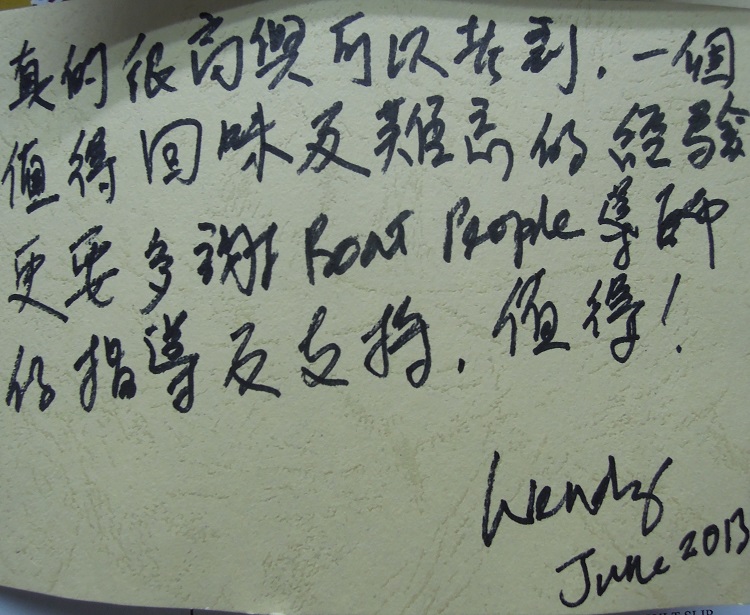 真的很高興可以考到,一個
值得回味及難忘的經驗
更要多謝 Boat People 導師
的指導及支持,值得!
Wendy
June 2013
SLIP